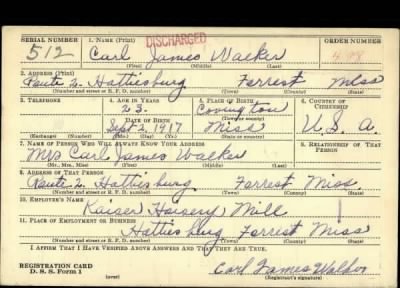 SERIAL NUMBER 1. NAME (Print) DISCHARGED ORDER NUMBER
512 Carl James Walker
(First) (Middle) (Last)
2. ADDRESS (Print)
Route 2. Hattiesburg Forrest Miss
(Number and street or R. F. D. number) (Town) (County) (State)
3. TELEPHONE 4. AGE IN YEARS 5. PLACE OF BIRTH 6. COUNTRY OF CITIZENSHIP
23 Covington
DATE OF BIRTH (Town or county)
Sept 2 1917 Miss U. S. A.
(Exchange) (Number) (Mo.) (Day) (Yr.) (State or country)
7. NAME OF PERSON WHO WILL ALWAYS KNOW YOUR ADDRESS 8. RELATIONSHIP OF THAT PERSON
Mrs Carl James Walker
(Mr., Mrs., Miss) (First) (Middle) (Last)
9. ADDRESS OF THAT PERSON
Route 2. Hattiesburg Forrest Miss.
(Number and street or R. F. D. number) (Town) (County) (State)
10. EMPLOYER'S NAME
Kaiser Mill
11. PLACE OF EMPLOYMENT OR BUSINESS
Hattiesburg Forrest Miss
(Number and street or R. F. D. number) (Town) (County) (State)
I AFFIRM THAT I HAVE VERIFIED ABOVE ANSWERS AND THAT THEY ARE TRUE.
REGISTRATION CARD
D. S. S. Form 1 (over) Carl James Walker
(Registrant's signature)